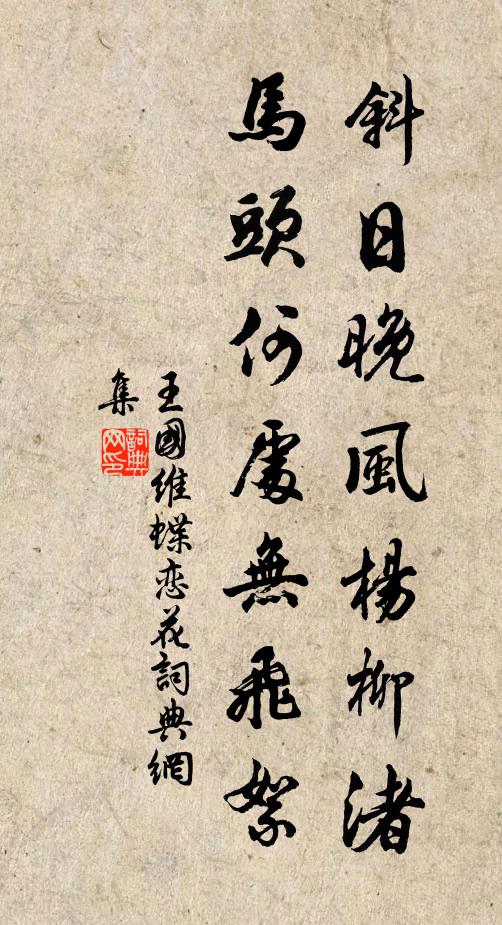 斜日晚風楊柳渚
馬頭何處無飛絮
王國維蝶恋花詞典網
集
詞典
网印